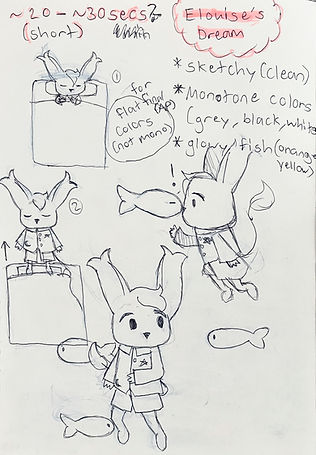 ~20-~30secs?
(short)
Elouise's
Dream
①
for
flat final
colors
(not mono)
*sketchy(clean)
*Monotone colors
(grey, black, white
*glowy fish(orange
yellow)
!
②